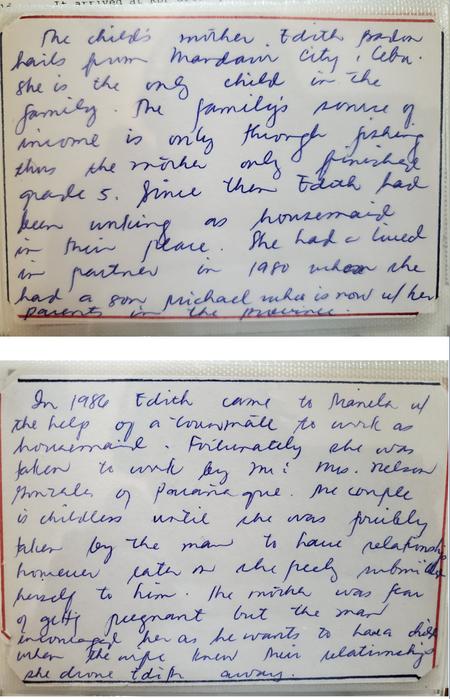 It arrived at
The child's mother, Edith
hails from Mandaue City, Cebu.
She is the only child in the
family. The family's source of
income is only through fishing
thus the mother only finished
grade 5. Since then Edith had
been working as housemaid
in their place. She had a lived
in partner in 1980 whom she
had a son Michael who is now w/ her
parents in the province.
In 1986 Edith came to Manila w/
the help of a townmate to work as
housemaid. Fortunately she was
taken to work by Mr & Mrs. Nelson
Gonzales of Parañaque. The couple
is childless until she was forcibly
taken by the man to have relationship
however later on she freely submitted
herself to him. The mother was fear
of getting pregnant but the man
encouraged her as he wants to have a child
when the wife knew their relationship
she drove Edith away.